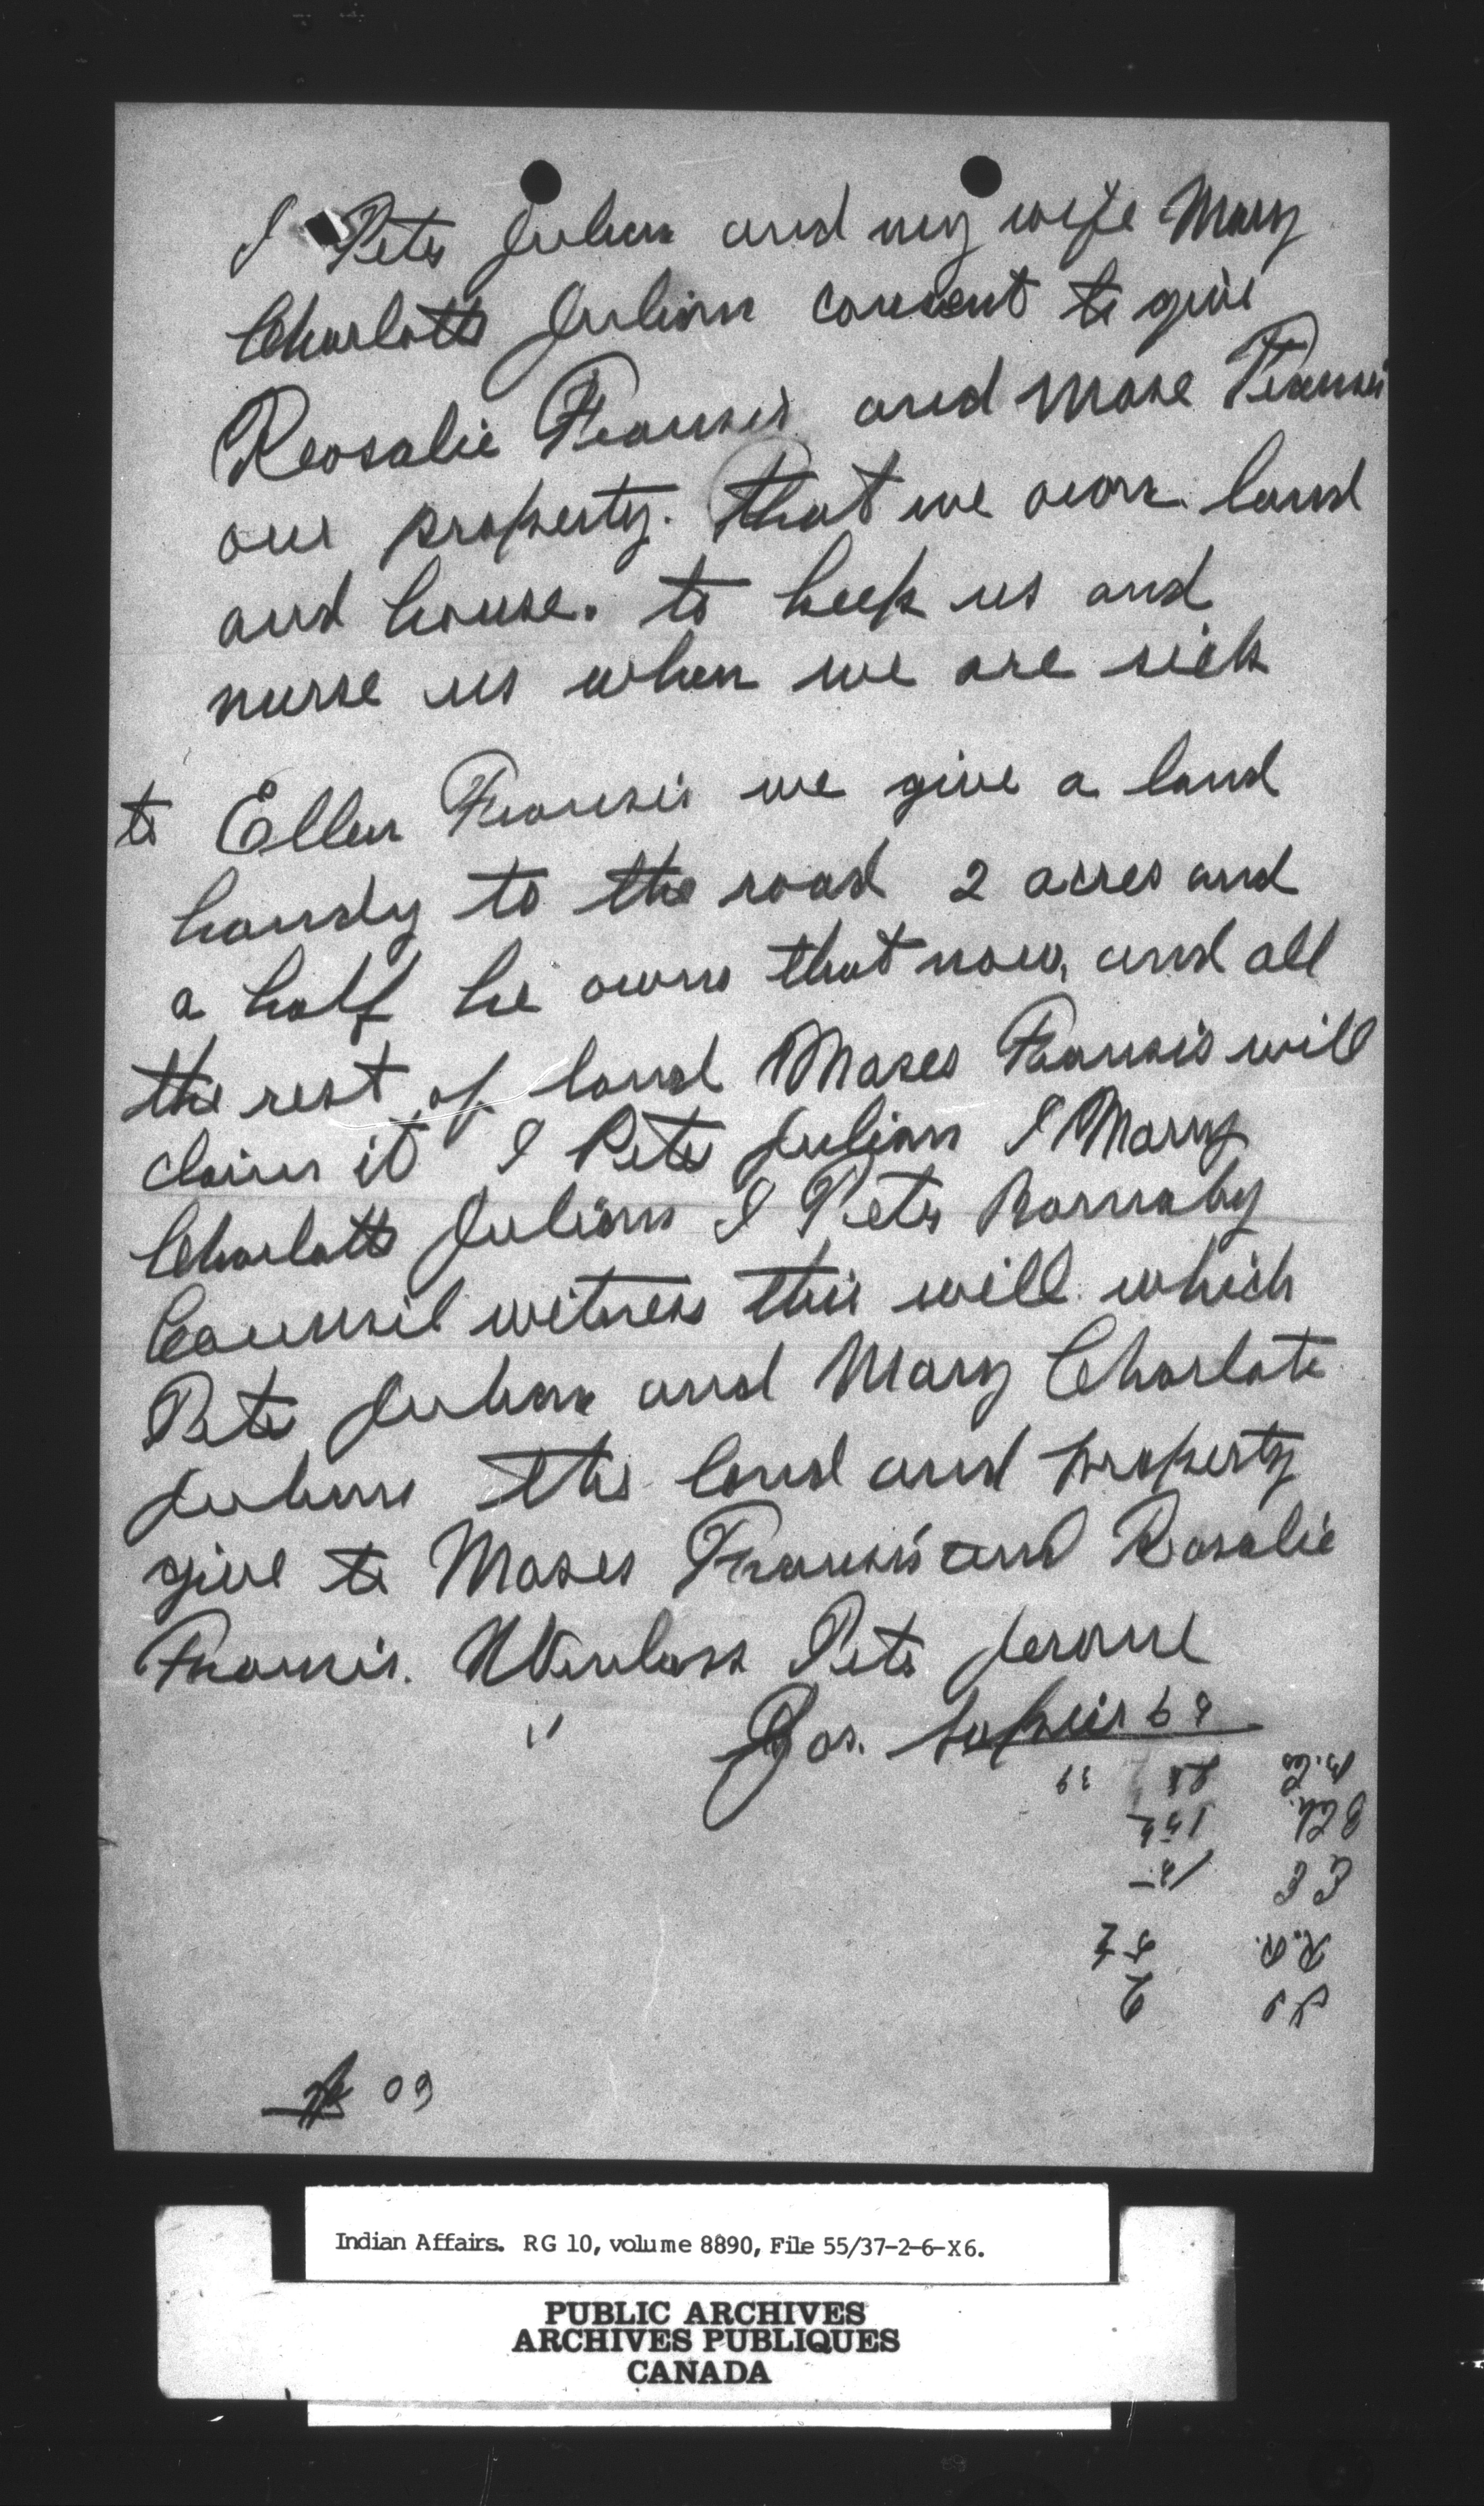 I Peter Julian and my wife Mary
Charlotte Julian consent to give
Reosalie Fransis and Mose Fransis
our property. That we own land
and house. to keep us and
nurse us when we are sick
to Ellen Fransis we give a land
handy to the road 2 acres and
a half he owns that now, and all
the rest of land Moses Fransis will
claim it I Peter Julian I Mary
Charlotte Julian I Peter Barnaby
Counsil witness this will which
Peter Julian and Mary Charlote
Julian the land and property
give to Moses Fransis and Rosalie
Fransis. Peter Jerome
" Jos.
39
152
18
R.R.
09
Indian Affairs. RG 10, volume 8890, File 55/37-2-6-X6.
PUBLIC ARCHIVES
ARCHIVES PUBLIQUES
CANADA